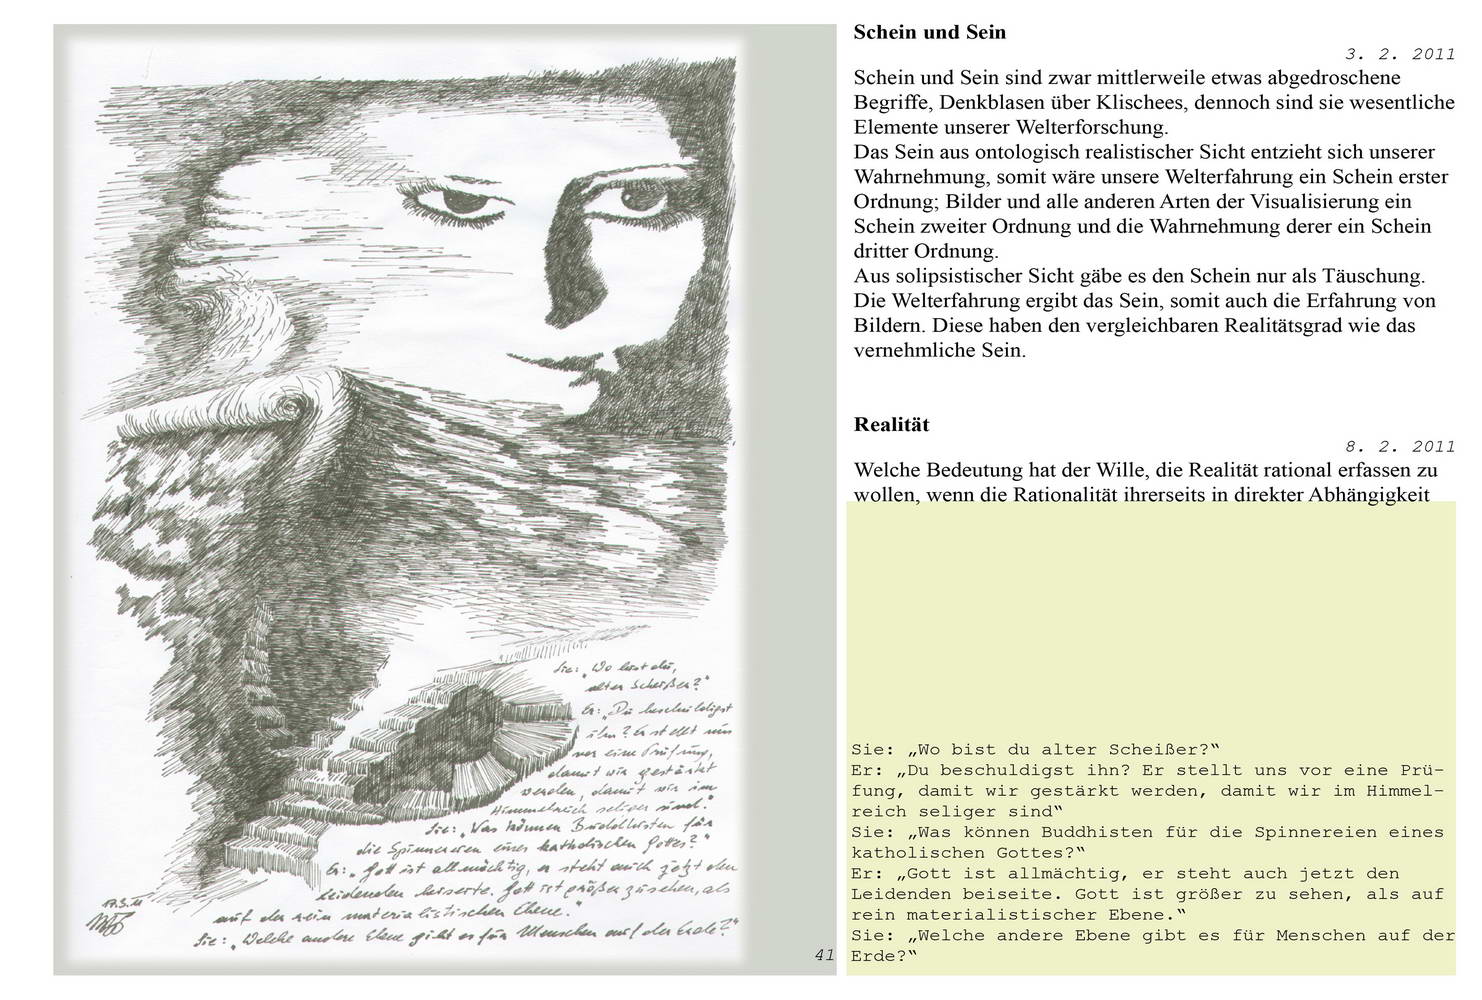 Sie: „Wo bist du,
alter Scheißer?"
Er: „Du beschuldigst
ihn? Er stellt uns
vor eine Prüfung,
damit wir gestärkt
werden, damit wir im
Himmelreich seliger sind."
Sie: „Was können Buddhisten für
die Spinnereien eines katholischen Gottes?"
Er: „Gott ist allmächtig, er steht auch jetzt den
Leidenden beiseite. Gott ist größer zu sehen, als
auf der rein materialistischen Ebene."
Sie: „Welche andere Ebene gibt es für Menschen auf der Erde?"
17.3.11
41
Schein und Sein
3. 2. 2011
Schein und Sein sind zwar mittlerweile etwas abgedroschene
Begriffe, Denkblasen über Klischees, dennoch sind sie wesentliche
Elemente unserer Welterforschung.
Das Sein aus ontologisch realistischer Sicht entzieht sich unserer
Wahrnehmung, somit wäre unsere Welterfahrung ein Schein erster
Ordnung; Bilder und alle anderen Arten der Visualisierung ein
Schein zweiter Ordnung und die Wahrnehmung derer ein Schein
dritter Ordnung.
Aus solipsistischer Sicht gäbe es den Schein nur als Täuschung.
Die Welterfahrung ergibt das Sein, somit auch die Erfahrung von
Bildern. Diese haben den vergleichbaren Realitätsgrad wie das
vernehmliche Sein.
Realität
8. 2. 2011
Welche Bedeutung hat der Wille, die Realität rational erfassen zu
wollen, wenn die Rationalität ihrerseits in direkter Abhängigkeit
Sie: „Wo bist du alter Scheißer?“
Er: „Du beschuldigst ihn? Er stellt uns vor eine Prü-
fung, damit wir gestärkt werden, damit wir im Himmel-
reich seliger sind“
Sie: „Was können Buddhisten für die Spinnereien eines
katholischen Gottes?“
Er: „Gott ist allmächtig, er steht auch jetzt den
Leidenden beiseite. Gott ist größer zu sehen, als auf
rein materialistischer Ebene.“
Sie: „Welche andere Ebene gibt es für Menschen auf der
Erde?“